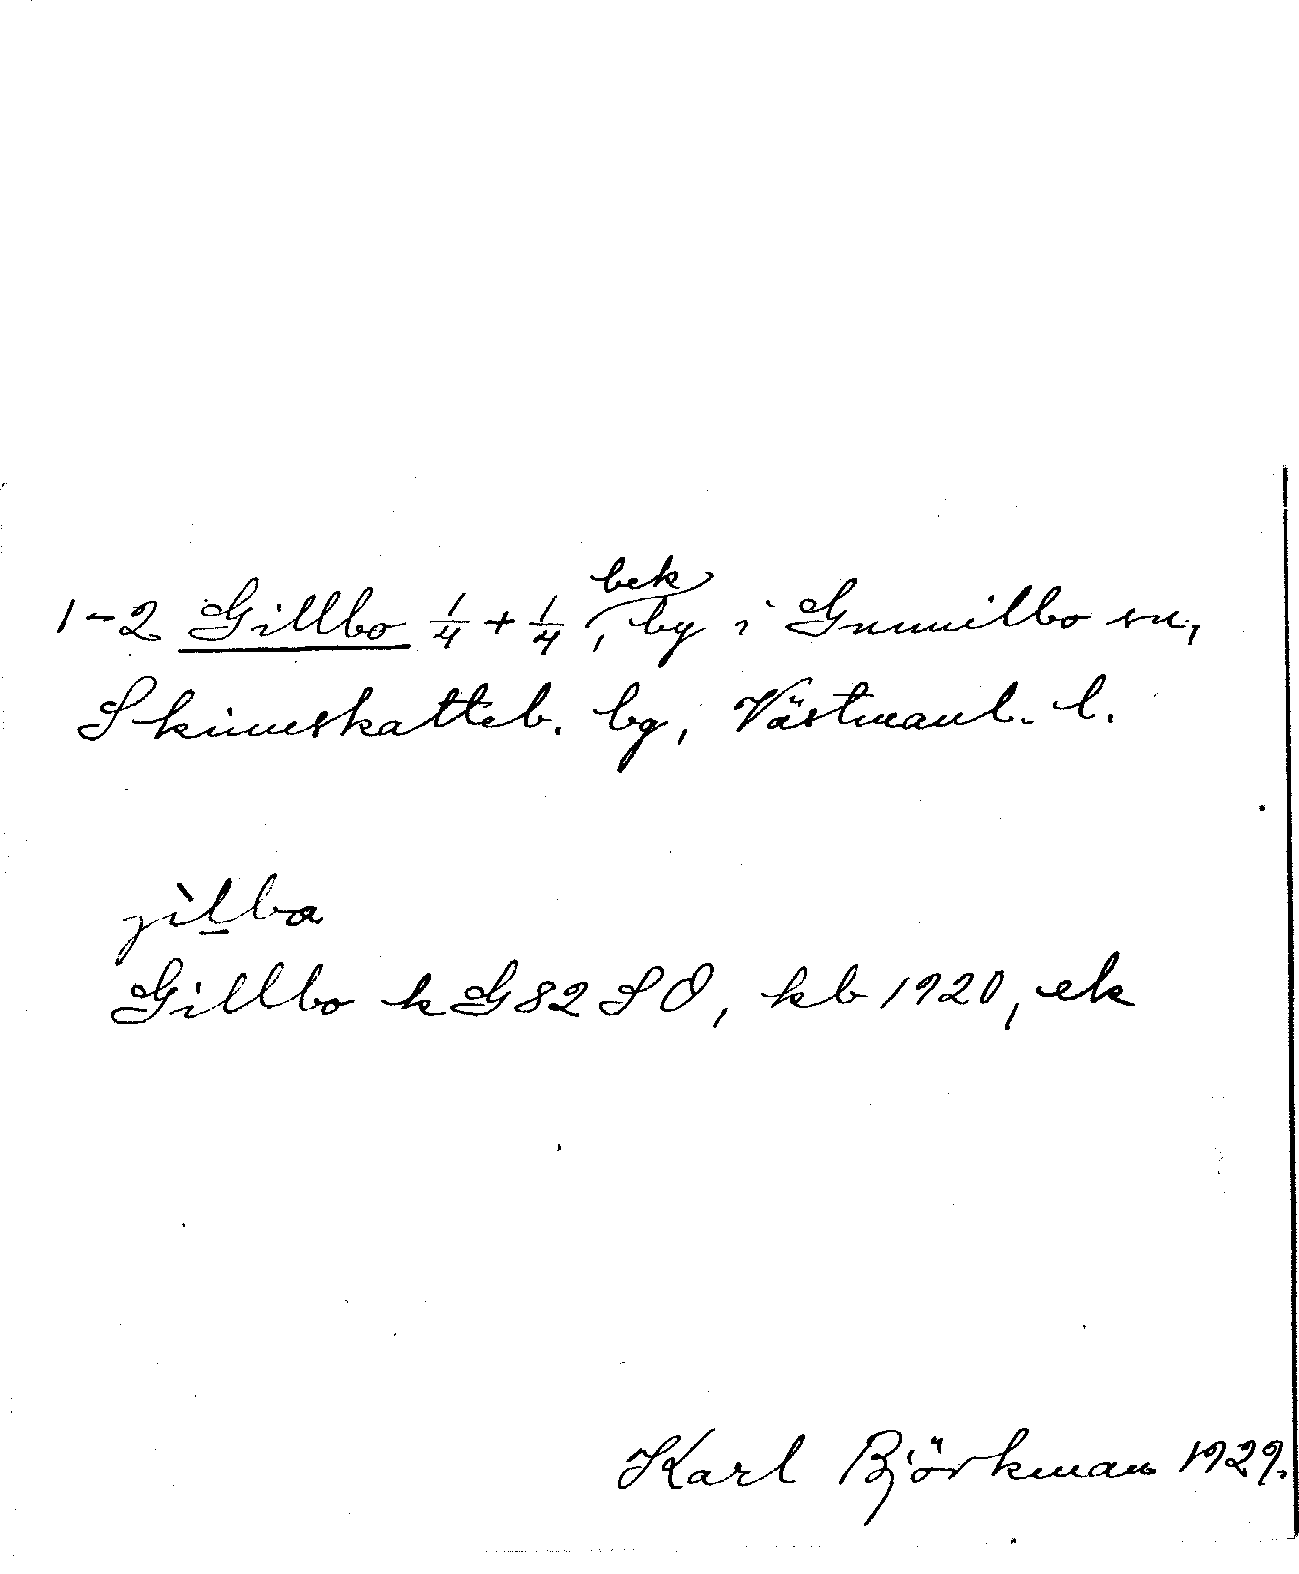 1-2 Gillbo 1/4 + 1/4, bek by i Gunnilbo sn,
Skinnskatteb. bg, Västmanl. l.
jìlba
Gillbo k G82SO, kb 1920, ek
Karl Björkman 1929.